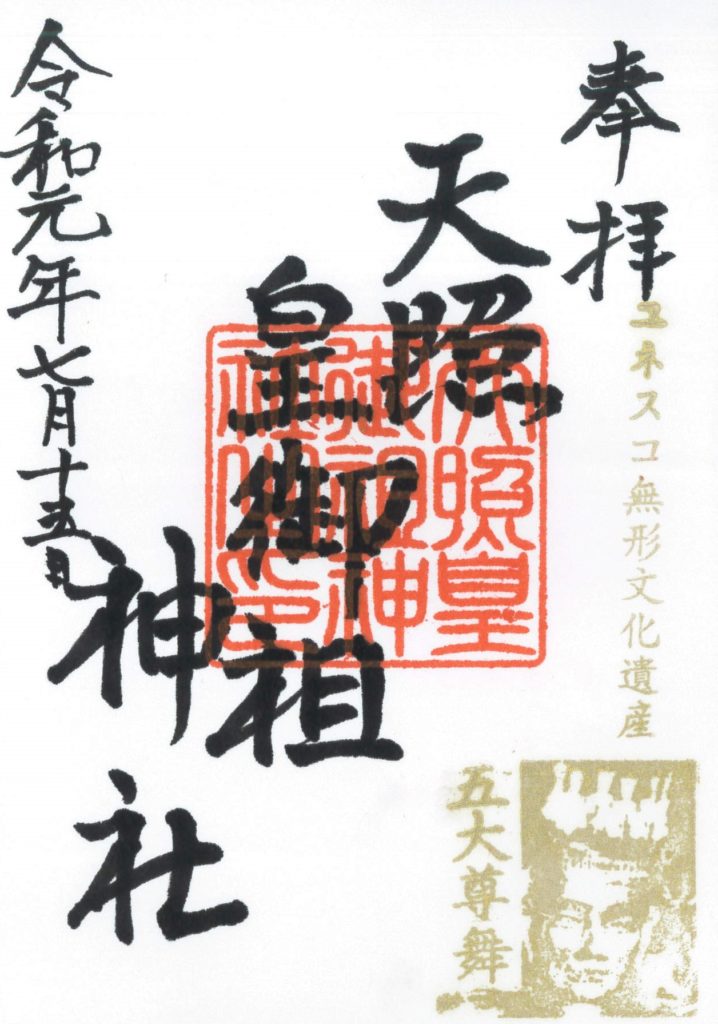 奉拝
ユネスコ無形文化遺産
五大尊舞
天照
皇御祖
神社
天照皇
御祖神
令和元年七月十五日